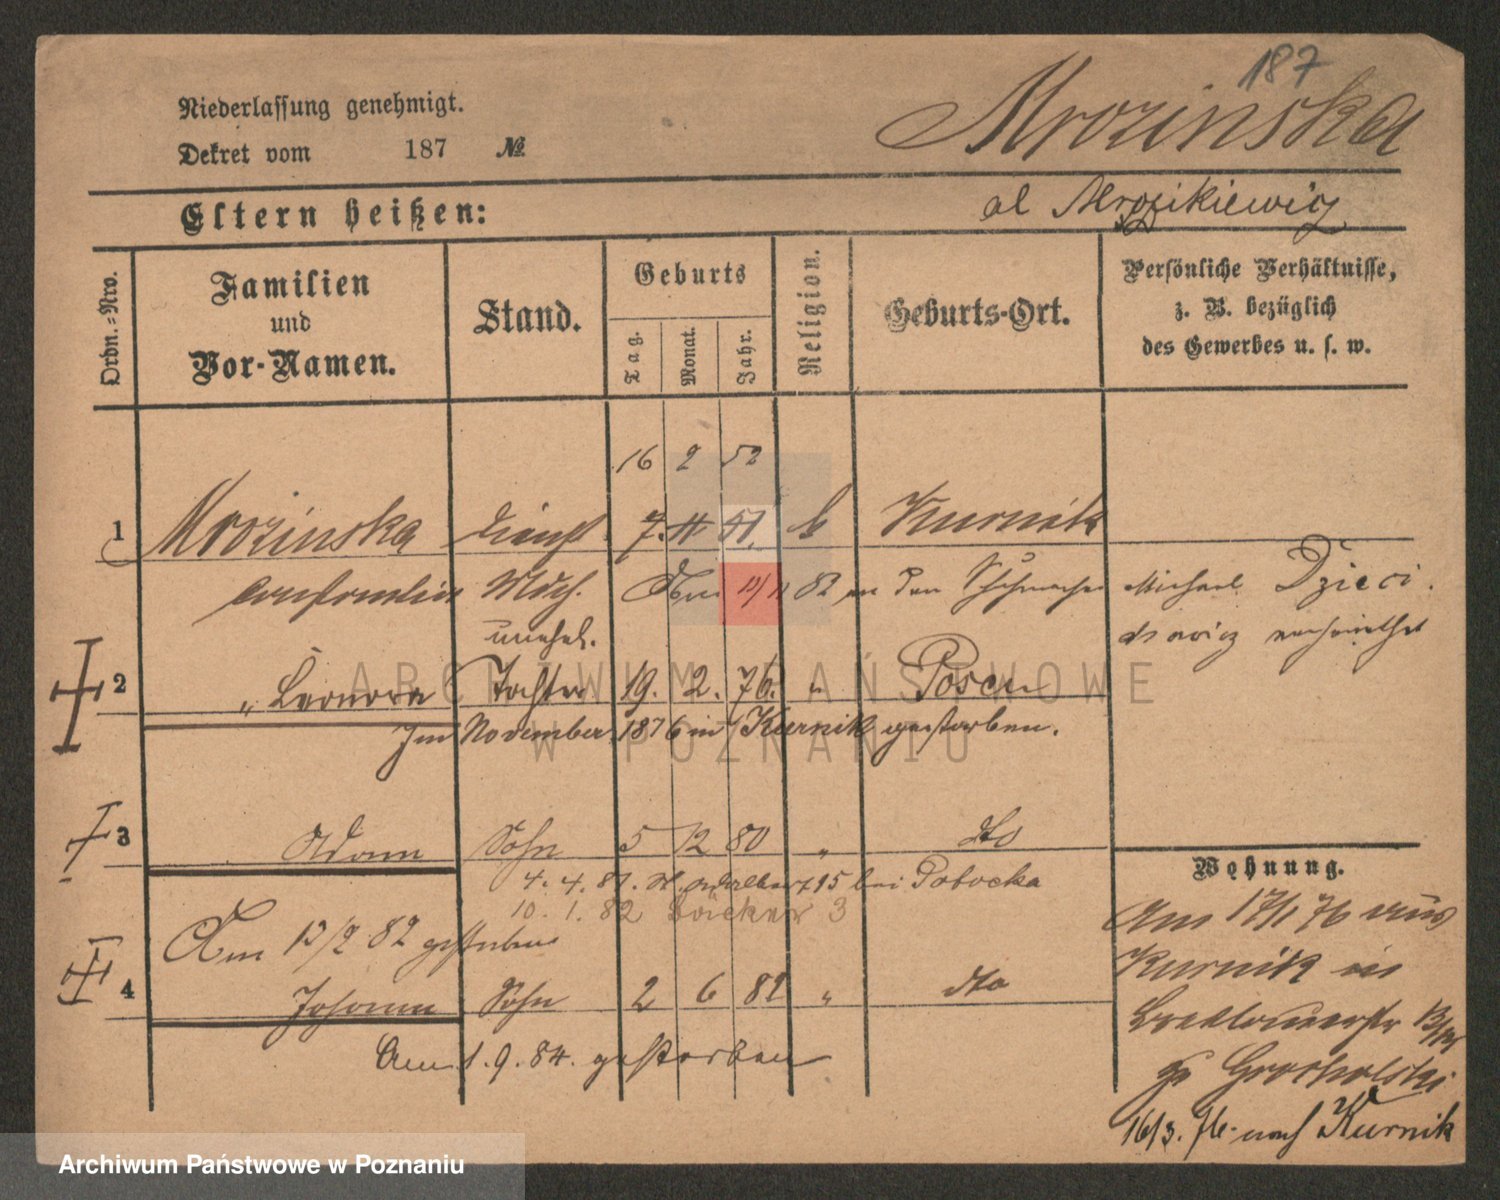 187
Niederlassung genehmigt.
Mrozinska
Dekret vom 187 №
Eltern heißen:
al Mrozikiewicz
Ordn.-Nro.
Familien und Vor-Namen.
Stand.
Geburts
Tag.
Monat.
Jahr.
Religion.
Geburts-Ort.
Persönliche Verhältnisse,
z. B. bezüglich
des Gewerbes u. s. w.
16 2 52
1 Mrozinska Dienst 7. 11 51. k Kurnik
Mdch. Am 13/11 82 an den Schuhmacher Michael Dzieci
unehel.
verheirathet
2 " Leonora Tochter 19. 2. 76. " Posen
Im November 1876 in Kurnik gestorben.
3 Adam Sohn 5 12 80 " dto
4. 4. 81. St. Adalbert 15 bei Potocka
10. 1. 82 Bäcker 3
Am 13/2 82 gestorben
4 Johann Sohn 2 6 82 " dto
Am 1. 9. 84. gestorben
Wohnung.
Am 17/1 76 aus
Kurnik in
Breslauerstr
Grocholski
16/3. 76. nach Kurnik
ARCHIWUM PAŃSTWOWE
W POZNANIU
Archiwum Państwowe w Poznaniu